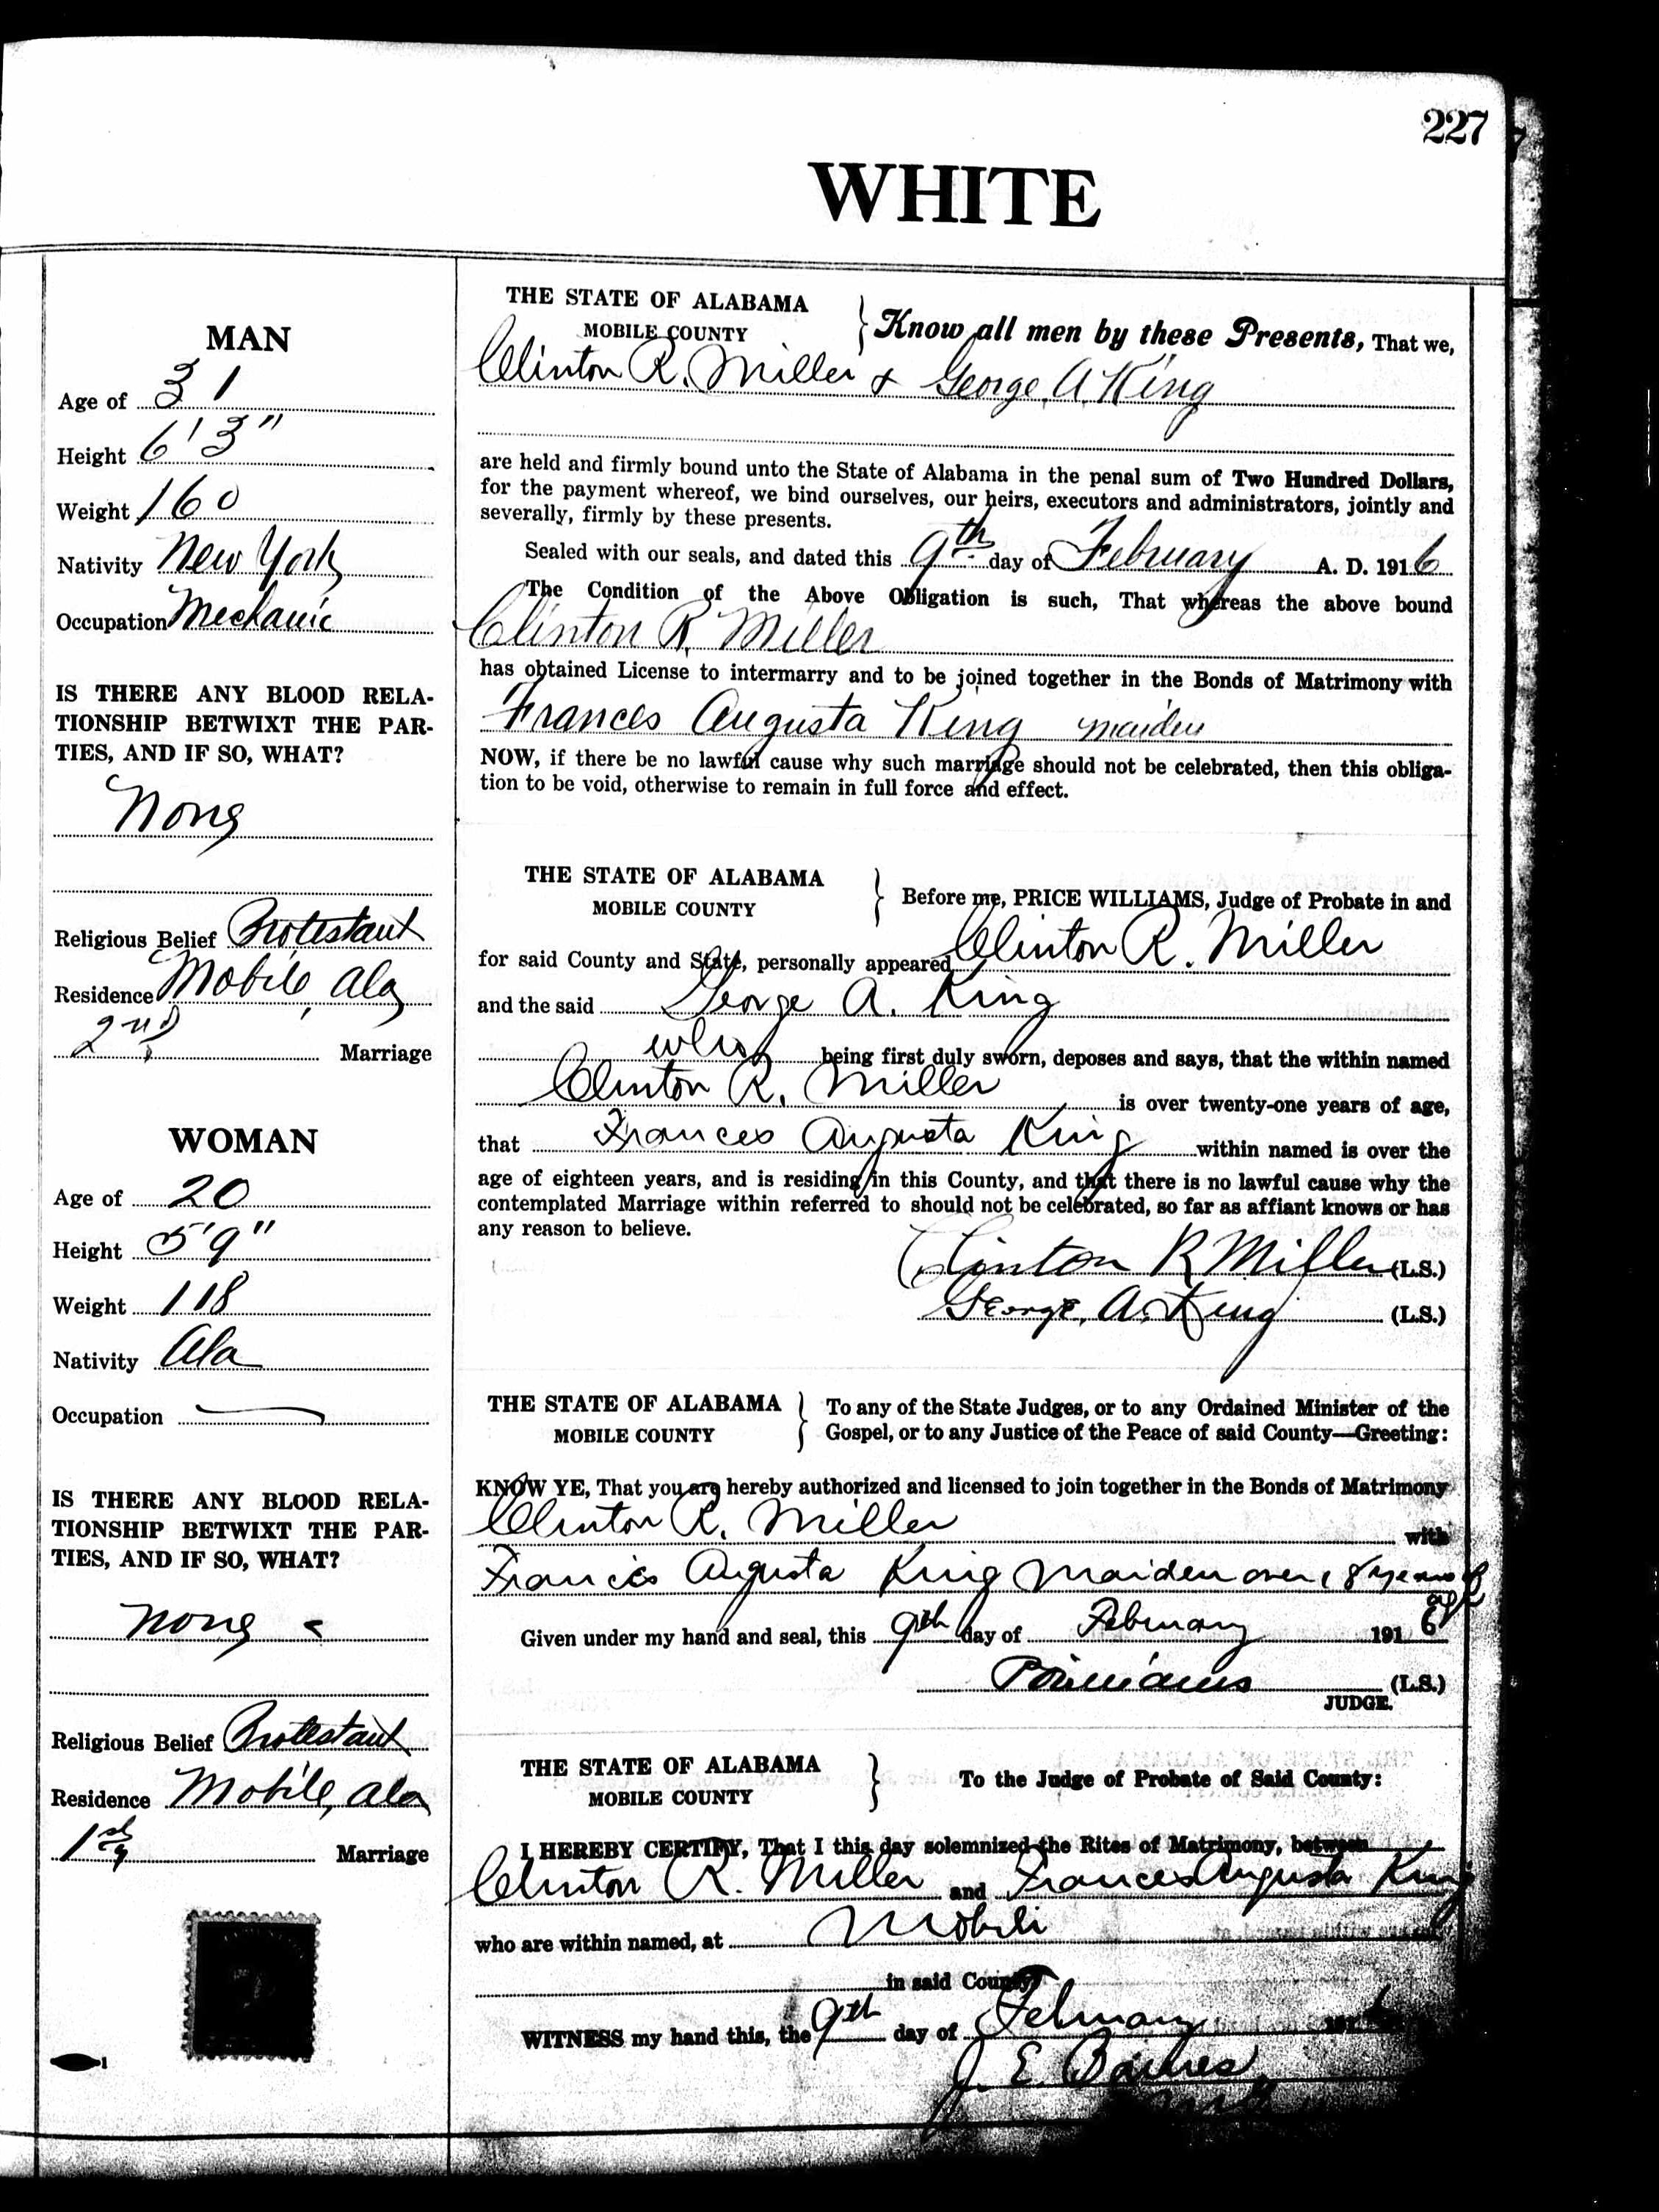 227
WHITE
MAN
Age of 31
Height 6'3"
Weight 160
Nativity New York
Occupation Mechanic
IS THERE ANY BLOOD RELA-
TIONSHIP BETWIXT THE PAR-
TIES, AND IF SO, WHAT?
None
Religious Belief Protestant
Residence Mobile, Ala
2nd Marriage
WOMAN
Age of 20
Height 5'9"
Weight 118
Nativity Ala
Occupation
IS THERE ANY BLOOD RELA-
TIONSHIP BETWIXT THE PAR-
TIES, AND IF SO, WHAT?
None
Religious Belief Protestant
Residence Mobile, Ala
1st Marriage
THE STATE OF ALABAMA
MOBILE COUNTY
Know all men by these Presents, That we,
Clinton R. Miller & George A. King
are held and firmly bound unto the State of Alabama in the penal sum of Two Hundred Dollars,
for the payment whereof, we bind ourselves, our heirs, executors and administrators, jointly and
severally, firmly by these presents.
Sealed with our seals, and dated this 9th day of February A. D. 1916
The Condition of the Above Obligation is such, That whereas the above bound
Clinton R. Miller
has obtained License to intermarry and to be joined together in the Bonds of Matrimony with
Frances Augusta King maiden
NOW, if there be no lawful cause why such marriage should not be celebrated, then this obliga-
tion to be void, otherwise to remain in full force and effect.
THE STATE OF ALABAMA
MOBILE COUNTY
Before me, PRICE WILLIAMS, Judge of Probate in and
for said County and State, personally appeared Clinton R. Miller
and the said George A. King
who being first duly sworn, deposes and says, that the within named
Clinton R. Miller is over twenty-one years of age,
that Frances Augusta King within named is over the
age of eighteen years, and is residing in this County, and that there is no lawful cause why the
contemplated Marriage within referred to should not be celebrated, so far as affiant knows or has
any reason to believe.
Clinton R Miller (L.S.)
George. A. King (L.S.)
THE STATE OF ALABAMA
MOBILE COUNTY
To any of the State Judges, or to any Ordained Minister of the
Gospel, or to any Justice of the Peace of said County—Greeting:
KNOW YE, That you are hereby authorized and licensed to join together in the Bonds of Matrimony
Clinton R. Miller with
Francis Augusta King Maiden over 18 years of
age
Given under my hand and seal, this 9th day of February 1916
PWilliams (L.S.)
JUDGE.
THE STATE OF ALABAMA
MOBILE COUNTY
To the Judge of Probate of Said County:
I HEREBY CERTIFY, That I this day solemnized the Rites of Matrimony, between
Clinton R. Miller and Frances Augusta King
who are within named, at Mobile
in said County
WITNESS my hand this, the 9th day of February 191
J. E. Barnes